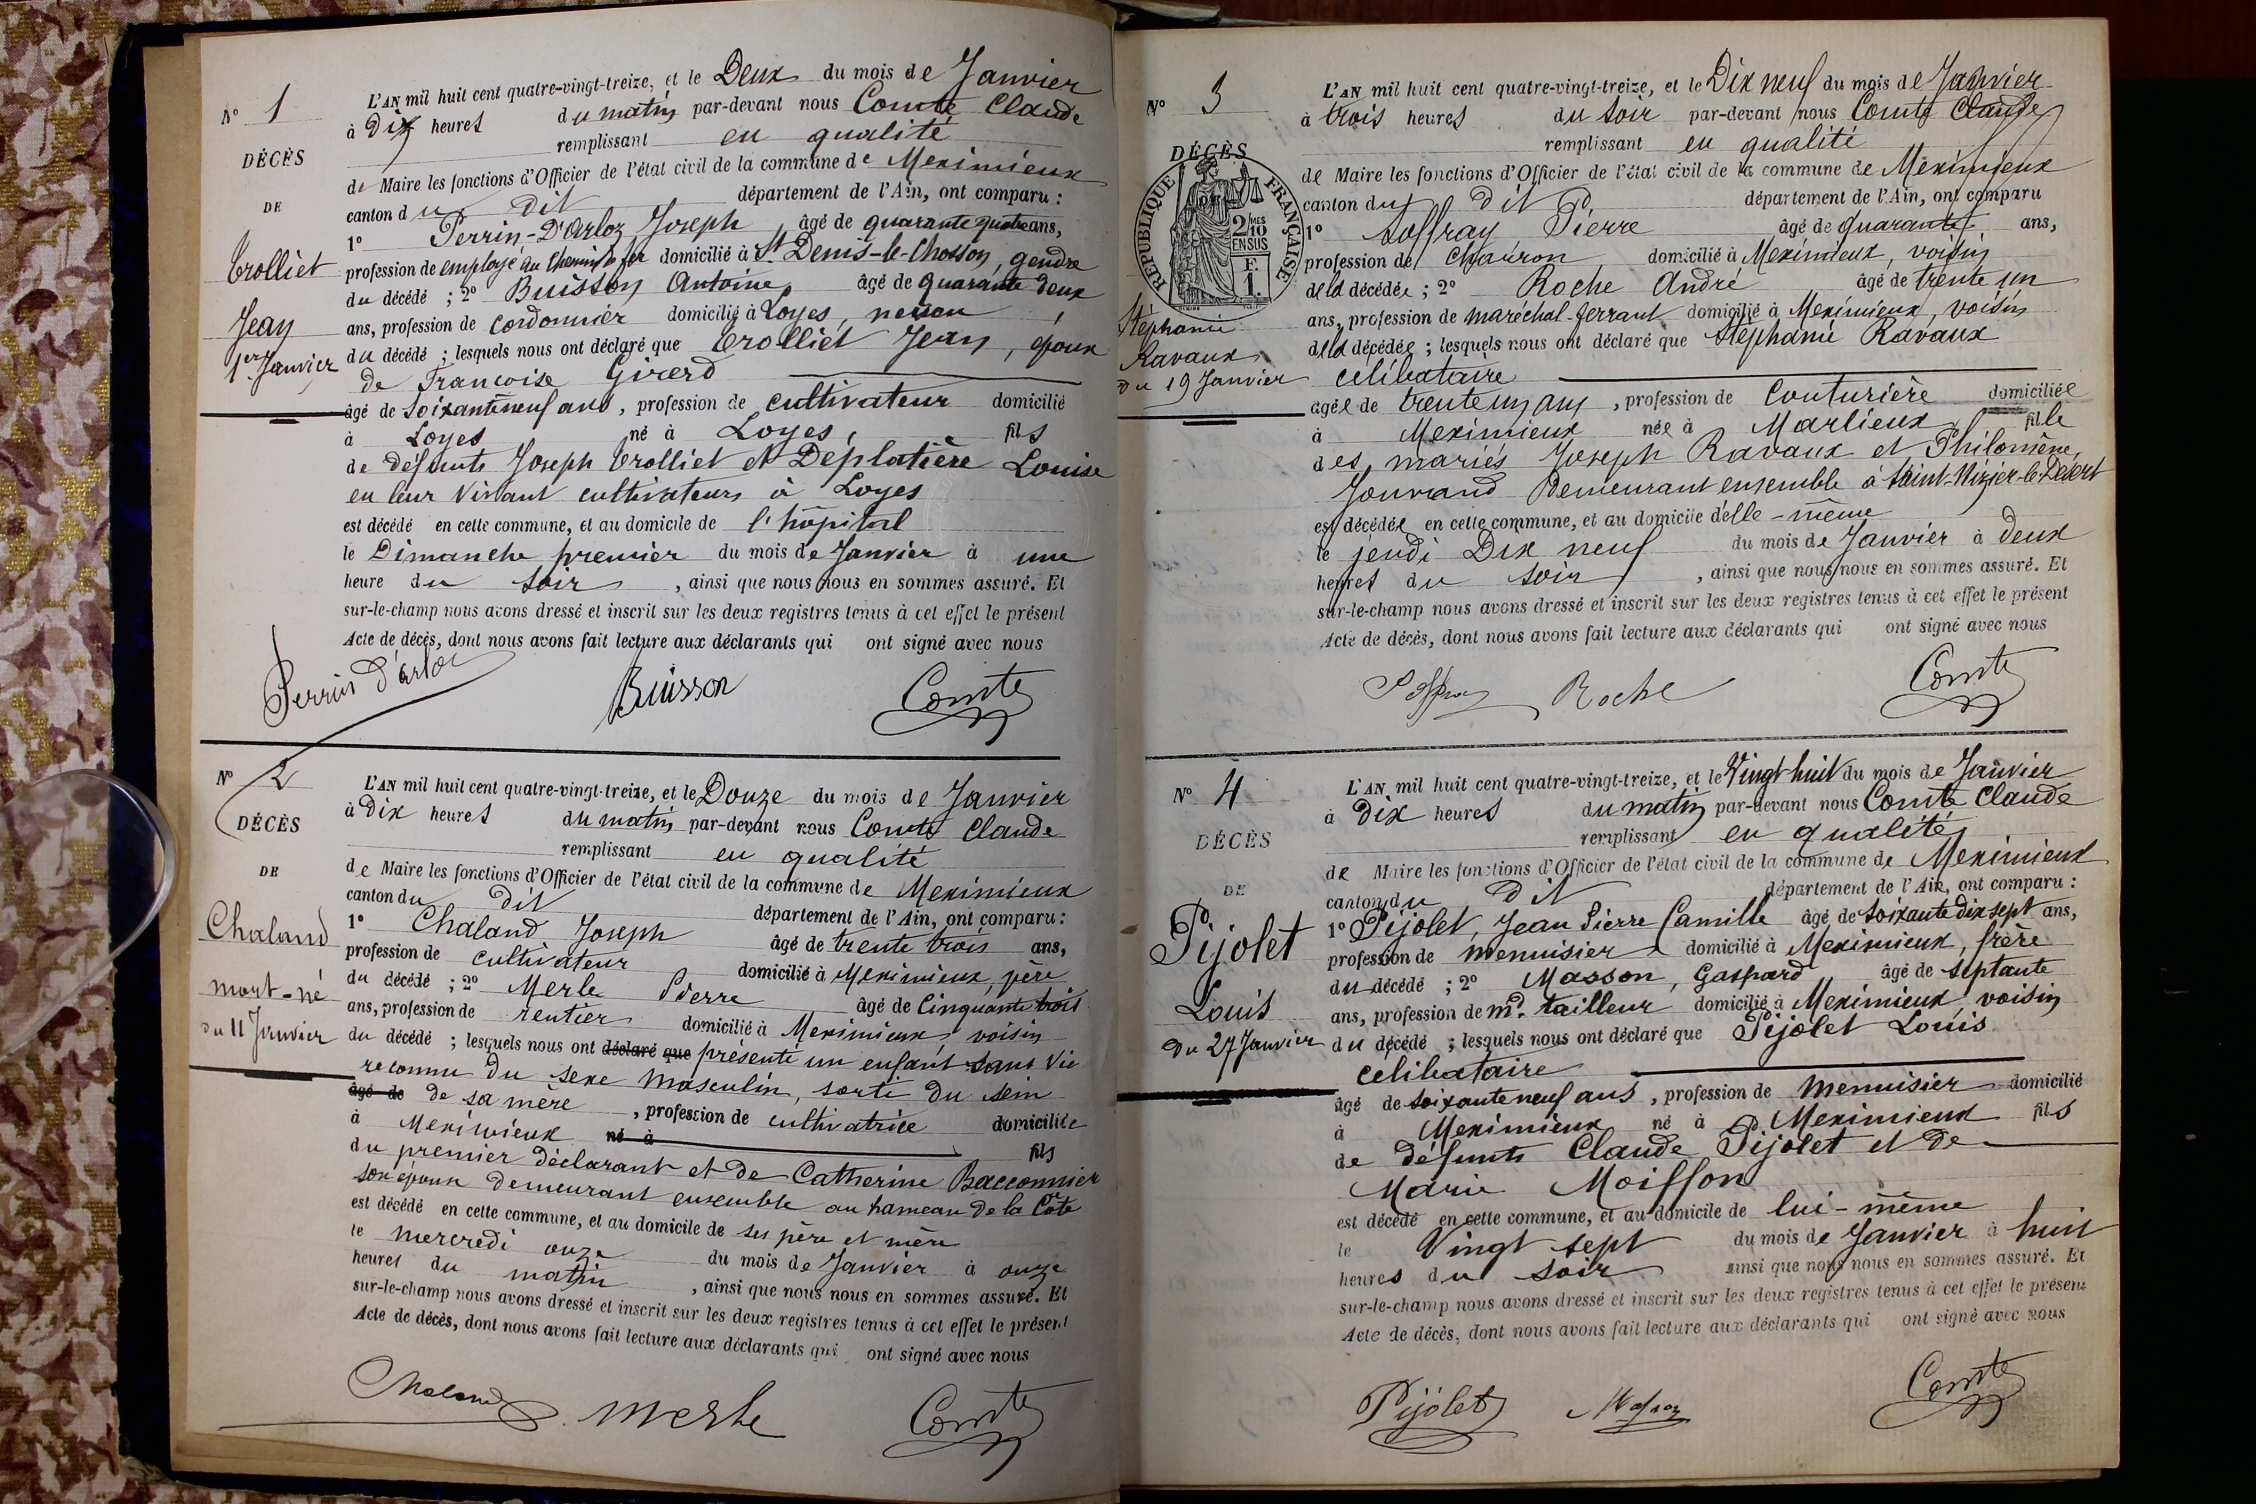 N° 1
DÉCÈS
DE
Trolliet
Jean
1er Janvier
L'AN mil huit cent quatre-vingt-treize, et le Deux du mois de Janvier
à Dix heures du matin par-devant nous Comte Claude
remplissant en qualité
de Maire les fonctions d'Officier de l'état civil de la commune de Meximieux
canton du dit département de l'Ain, ont comparu :
1° Perrin-D'arloz Joseph âgé de quarante quatre ans,
profession de employé au chemin de fer domicilié à St Denis-le-Chosson, gendre
du décédé ; 2° Buisson Antoine âgé de quarante deux
ans, profession de cordonnier domicilié à Loyes, neveu
du décédé ; lesquels nous ont déclaré que Trolliet Jean, époux
de Francoise Girerd
âgé de soixante neuf ans, profession de cultivateur domicilié
à Loyes né à Loyes, fils
de défunts Joseph Trolliet et Déplatière Louise
en leur vivant cultivateurs à Loyes
est décédé en cette commune, et au domicile de l'hôpital
le Dimanche premier du mois de Janvier à une
heure du soir, ainsi que nous nous en sommes assuré. Et
sur-le-champ nous avons dressé et inscrit sur les deux registres tenus à cet effet le présent
Acte de décès, dont nous avons fait lecture aux déclarants qui ont signé avec nous
Perrin d'arloz Buisson Comte
N° 2
DÉCÈS
DE
Chaland
mort-né
du 11 Janvier
L'AN mil huit cent quatre-vingt-treize, et le Douze du mois de Janvier
à Dix heures du matin par-devant nous Comte Claude
remplissant en qualité
de Maire les fonctions d'Officier de l'état civil de la commune de Meximieux
canton du dit département de l'Ain, ont comparu :
1° Chaland Joseph âgé de trente trois ans,
profession de cultivateur domicilié à Meximieux, père
du décédé ; 2° Merle Pierre âgé de Cinquante trois
ans, profession de rentier domicilié à Meximieux voisin
du décédé ; lesquels nous ont déclaré que présenté un enfant sans vie
reconnu du sexe masculin, sorti du sein
âgé de de sa mère, profession de cultivatrice domiciliée
à Meximieux né à fils
du premier déclarant et de Catherine Baccounier
son épouse demeurant ensemble au hameau de la Côte
est décédé en cette commune, et au domicile de ses père et mère
le mercredi onze du mois de Janvier à onze
heures du matin, ainsi que nous nous en sommes assuré. Et
sur-le-champ nous avons dressé et inscrit sur les deux registres tenus à cet effet le présent
Acte de décès, dont nous avons fait lecture aux déclarants qui ont signé avec nous
Chaland Merle Comte
N° 3
DÉCÈS
RÉPUBLIQUE FRANÇAISE
2 MES
10
EN SUS
F.
1.
Stéphanie
Ravaux
du 19 Janvier
L'AN mil huit cent quatre-vingt-treize, et le Dix neuf du mois de Janvier
à trois heures du soir par-devant nous Comte Claude
remplissant en qualité
de Maire les fonctions d'Officier de l'état civil de la commune de Meximieux
canton du dit département de l'Ain, ont comparu
1° Soffray Pierre âgé de quarante ans,
profession de charron domicilié à Meximieux, voisin
de la décédée ; 2° Roche André âgé de trente un
ans, profession de maréchal-ferrant domicilié à Meximieux, voisin
de la décédée ; lesquels nous ont déclaré que Stéphanie Ravaux
célibataire
agée de trente un ans, profession de Couturière domiciliée
à Meximieux née à Marlieux fille
des mariés Joseph Ravaux et Philomène
Jouvand Demeurant ensemble à Saint-Nizier-le-Désert
est décédée en cette commune, et au domicile d'elle-même
le jeudi Dix neuf du mois de Janvier à deux
heures du soir, ainsi que nous nous en sommes assuré. Et
sur-le-champ nous avons dressé et inscrit sur les deux registres tenus à cet effet le présent
Acte de décès, dont nous avons fait lecture aux déclarants qui ont signé avec nous
Roche Comte
N° 4
DÉCÈS
DE
Pijolet
Louis
du 27 Janvier
L'AN mil huit cent quatre-vingt-treize, et le Vingt huit du mois de Janvier
à Dix heures du matin par-devant nous Comte Claude
remplissant en qualité
de Maire les fonctions d'Officier de l'état civil de la commune de Meximieux
canton du dit département de l'Ain, ont comparu :
1° Pijolet, Jean Pierre Camille âgé de soixante dix sept ans,
profession de menuisier domicilié à Meximieux, frère
du décédé ; 2° Masson, Gaspard âgé de septante
ans, profession de md. tailleur domicilié à Meximieux voisin
du décédé ; lesquels nous ont déclaré que Pijolet Louis
célibataire
âgé de soixante neuf ans, profession de menuisier domicilié
à Meximieux né à Meximieux fils
de défunts Claude Pijolet et de
Marie Moiffon
est décédé en cette commune, et au domicile de lui-même
le Vingt sept du mois de Janvier à huit
heures du soir ainsi que nous nous en sommes assuré. Et
sur-le-champ nous avons dressé et inscrit sur les deux registres tenus à cet effet le présent
Acte de décès, dont nous avons fait lecture aux déclarants qui ont signé avec nous
Pijolet Masson Comte